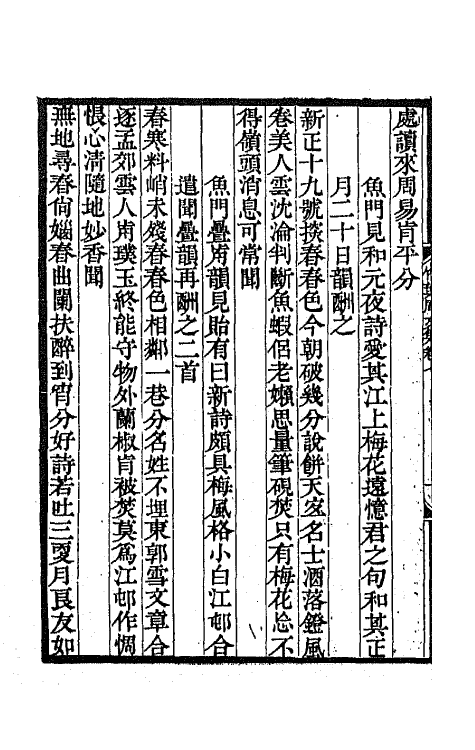 處讀來周易肯平分
魚門見和元夜詩愛其江上梅花遠憶君之句和其正
月二十日韻酬之
新正十九號探春春色今朝破幾分說餅天寒名士酒落鐙風
卷美人雲沈淪判斷魚蝦侶老嬾思量筆硯焚只有梅花忘不
得嶺頭消息可常聞
魚門疊歬韻見貽有曰新詩頗具梅風格小白江邨合
遣聞疊韻再酬之二首
春寒料峭未殘春春色相鄰一巷分名姓不埋東郭雪文章合
逐孟郊雲人歬璞玉終能守物外蘭椒肯被焚莫爲江邨作惆
恨心清隨地妙香聞
無地尋春尙嬾春曲闌扶醉到宵分好詩若吐三更月良友如